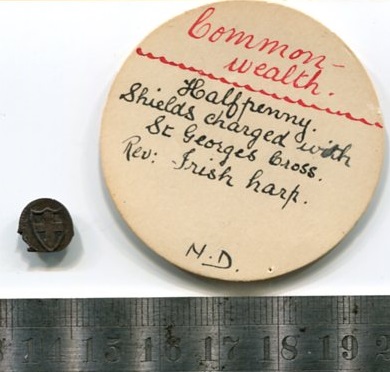 Common-
wealth.
Halfpenny.
Shields charged with
St Georges Cross.
Rev: Irish harp.
N.D.
14 15 16 17 18 19